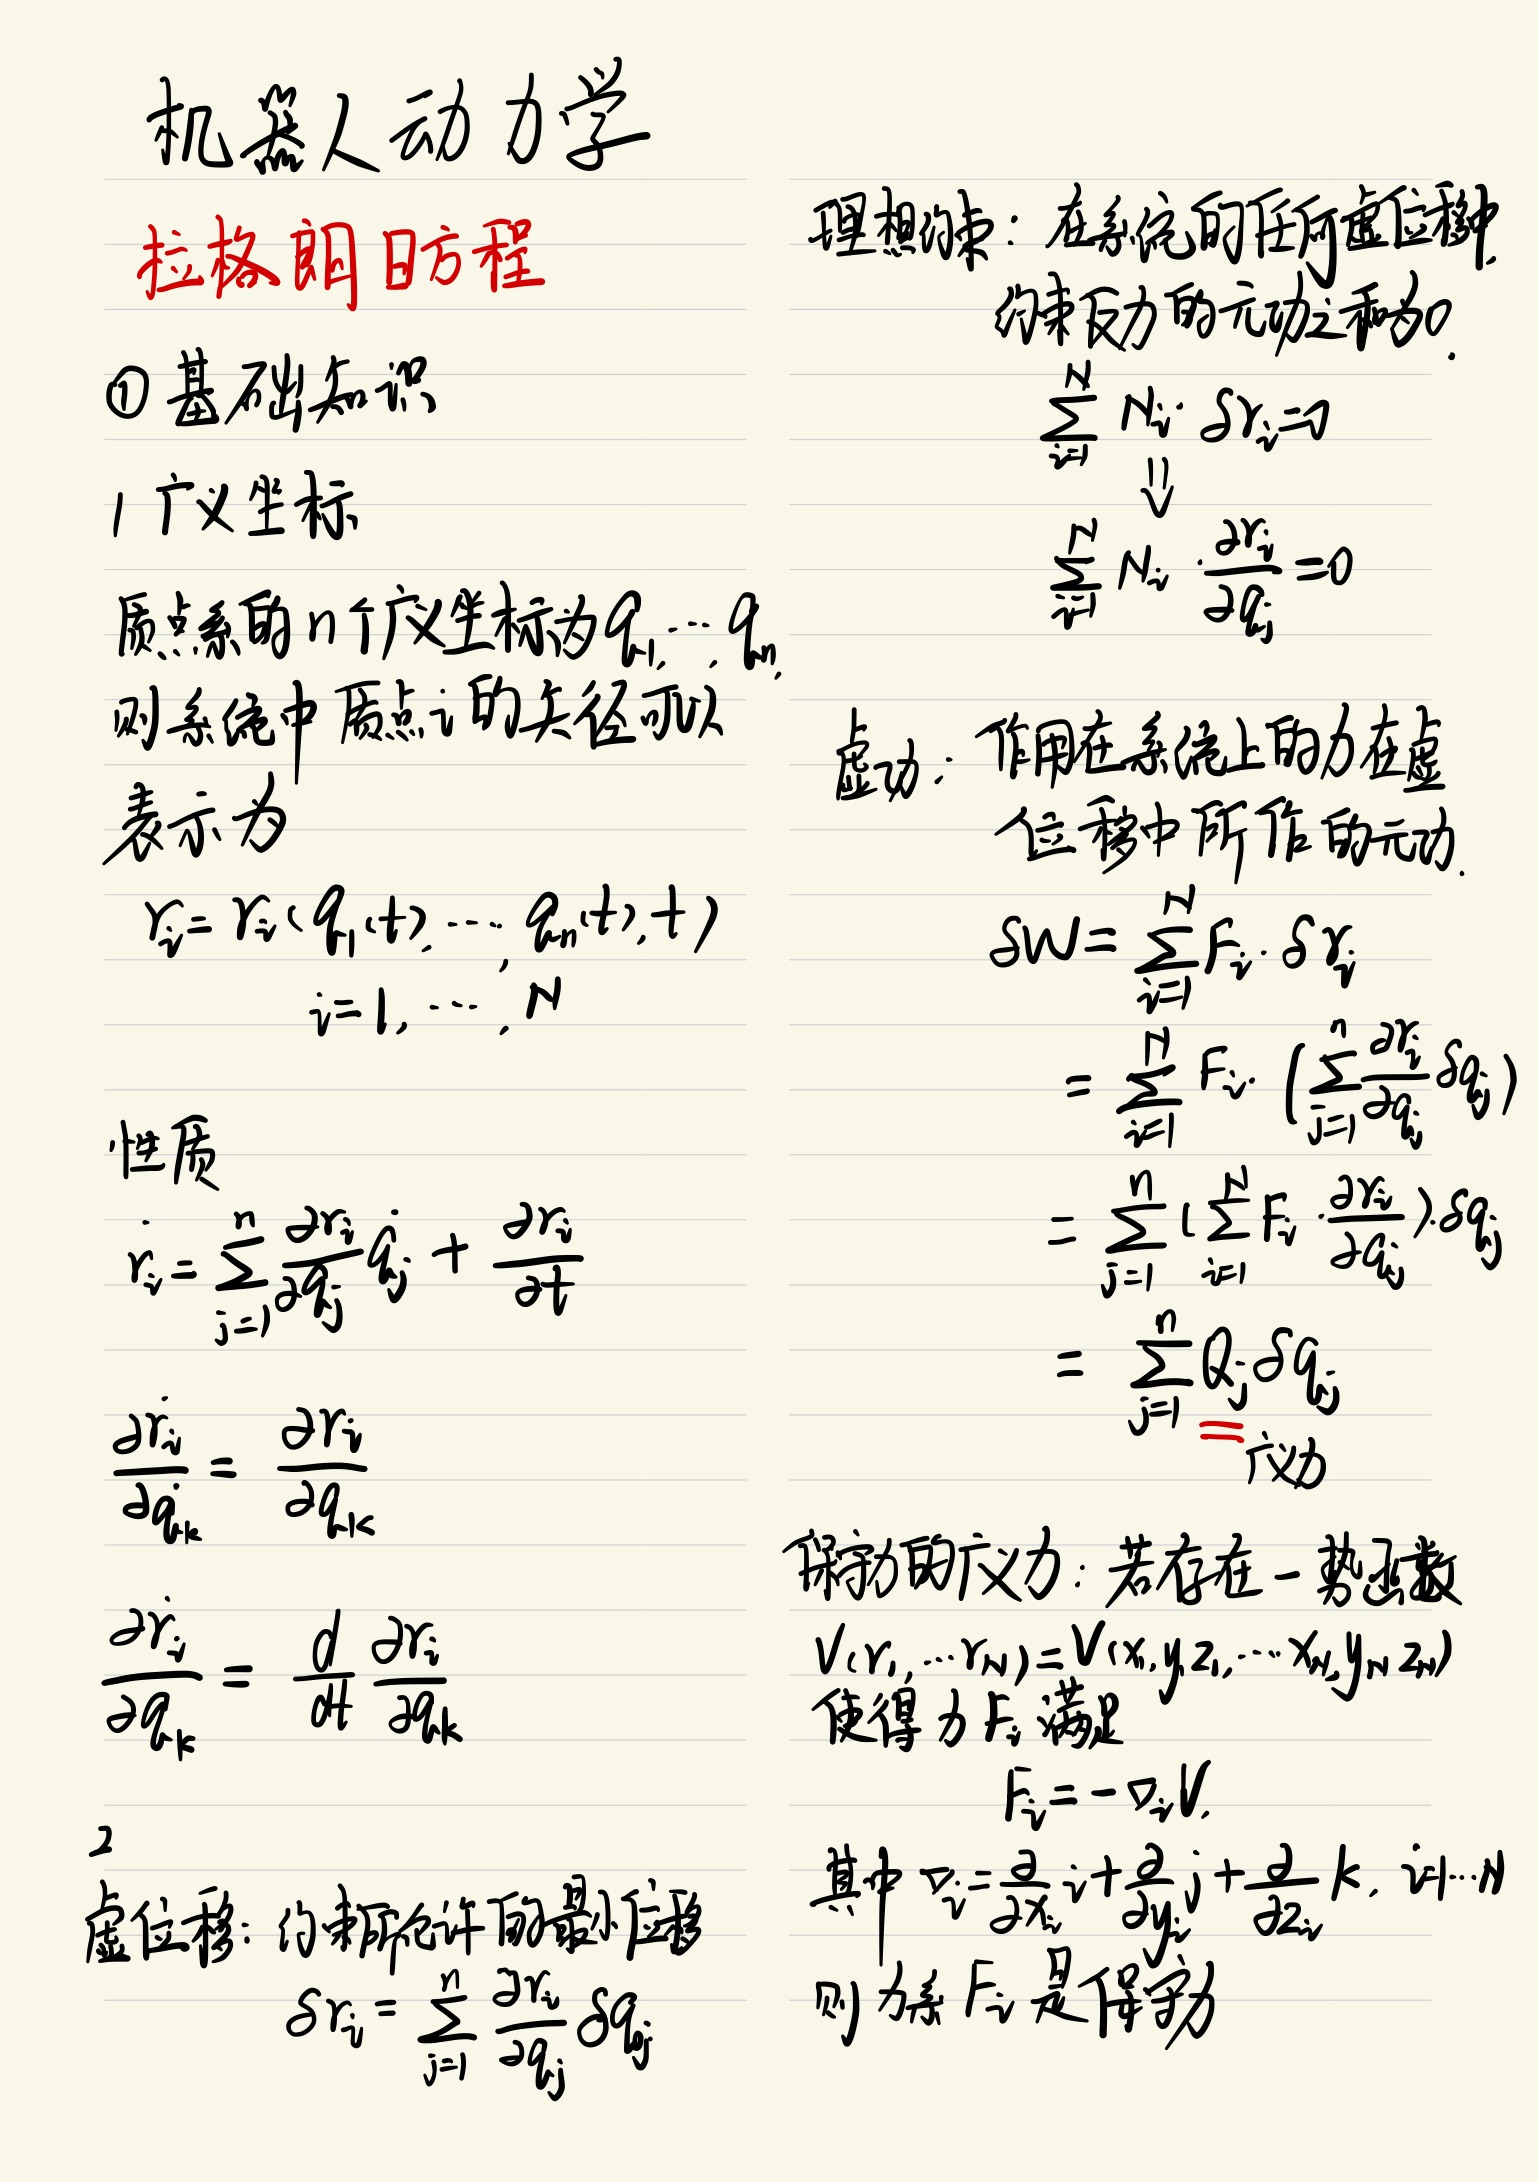 机器人动力学
拉格朗日方程
① 基础知识
1 广义坐标
质点系的n个广义坐标为q₁,…,qₙ,
则系统中质点i的矢径可以
表示为
rᵢ = rᵢ(q₁(t), …, qₙ(t), t)
i=1, …, N
性质
ṙᵢ = ∑_{j=1}^{n} ∂rᵢ/∂qⱼ q̇ⱼ + ∂rᵢ/∂t
∂ṙᵢ/∂q̇ₖ = ∂rᵢ/∂qₖ
∂ṙᵢ/∂qₖ = d/dt ∂rᵢ/∂qₖ
2
虚位移: 约束所允许的最小位移
δrᵢ = ∑_{j=1}^{n} ∂rᵢ/∂qⱼ δqⱼ
理想约束: 在系统的任何虚位移中,
约束反力的元功之和为0.
∑_{i=1}^{N} Nᵢ · δrᵢ = 0
⇓
∑_{i=1}^{N} Nᵢ · ∂rᵢ/∂qⱼ = 0
虚功: 作用在系统上的力在虚
位移中所作的元功.
δW = ∑_{i=1}^{N} Fᵢ · δrᵢ
= ∑_{i=1}^{N} Fᵢ · (∑_{j=1}^{n} ∂rᵢ/∂qⱼ δqⱼ)
= ∑_{j=1}^{n} (∑_{i=1}^{N} Fᵢ · ∂rᵢ/∂qⱼ) · δqⱼ
= ∑_{j=1}^{n} Qⱼ δqⱼ
广义力
保守力的广义力: 若存在一势函数
V(r₁, …r_N) = V(x₁, y₁ z₁, …x_N, y_N z_N)
使得力Fᵢ满足
Fᵢ = -∇ᵢV.
其中 ∇ᵢ = ∂/∂xᵢ i + ∂/∂yᵢ j + ∂/∂zᵢ k, i=1…N
则力系Fᵢ是保守力